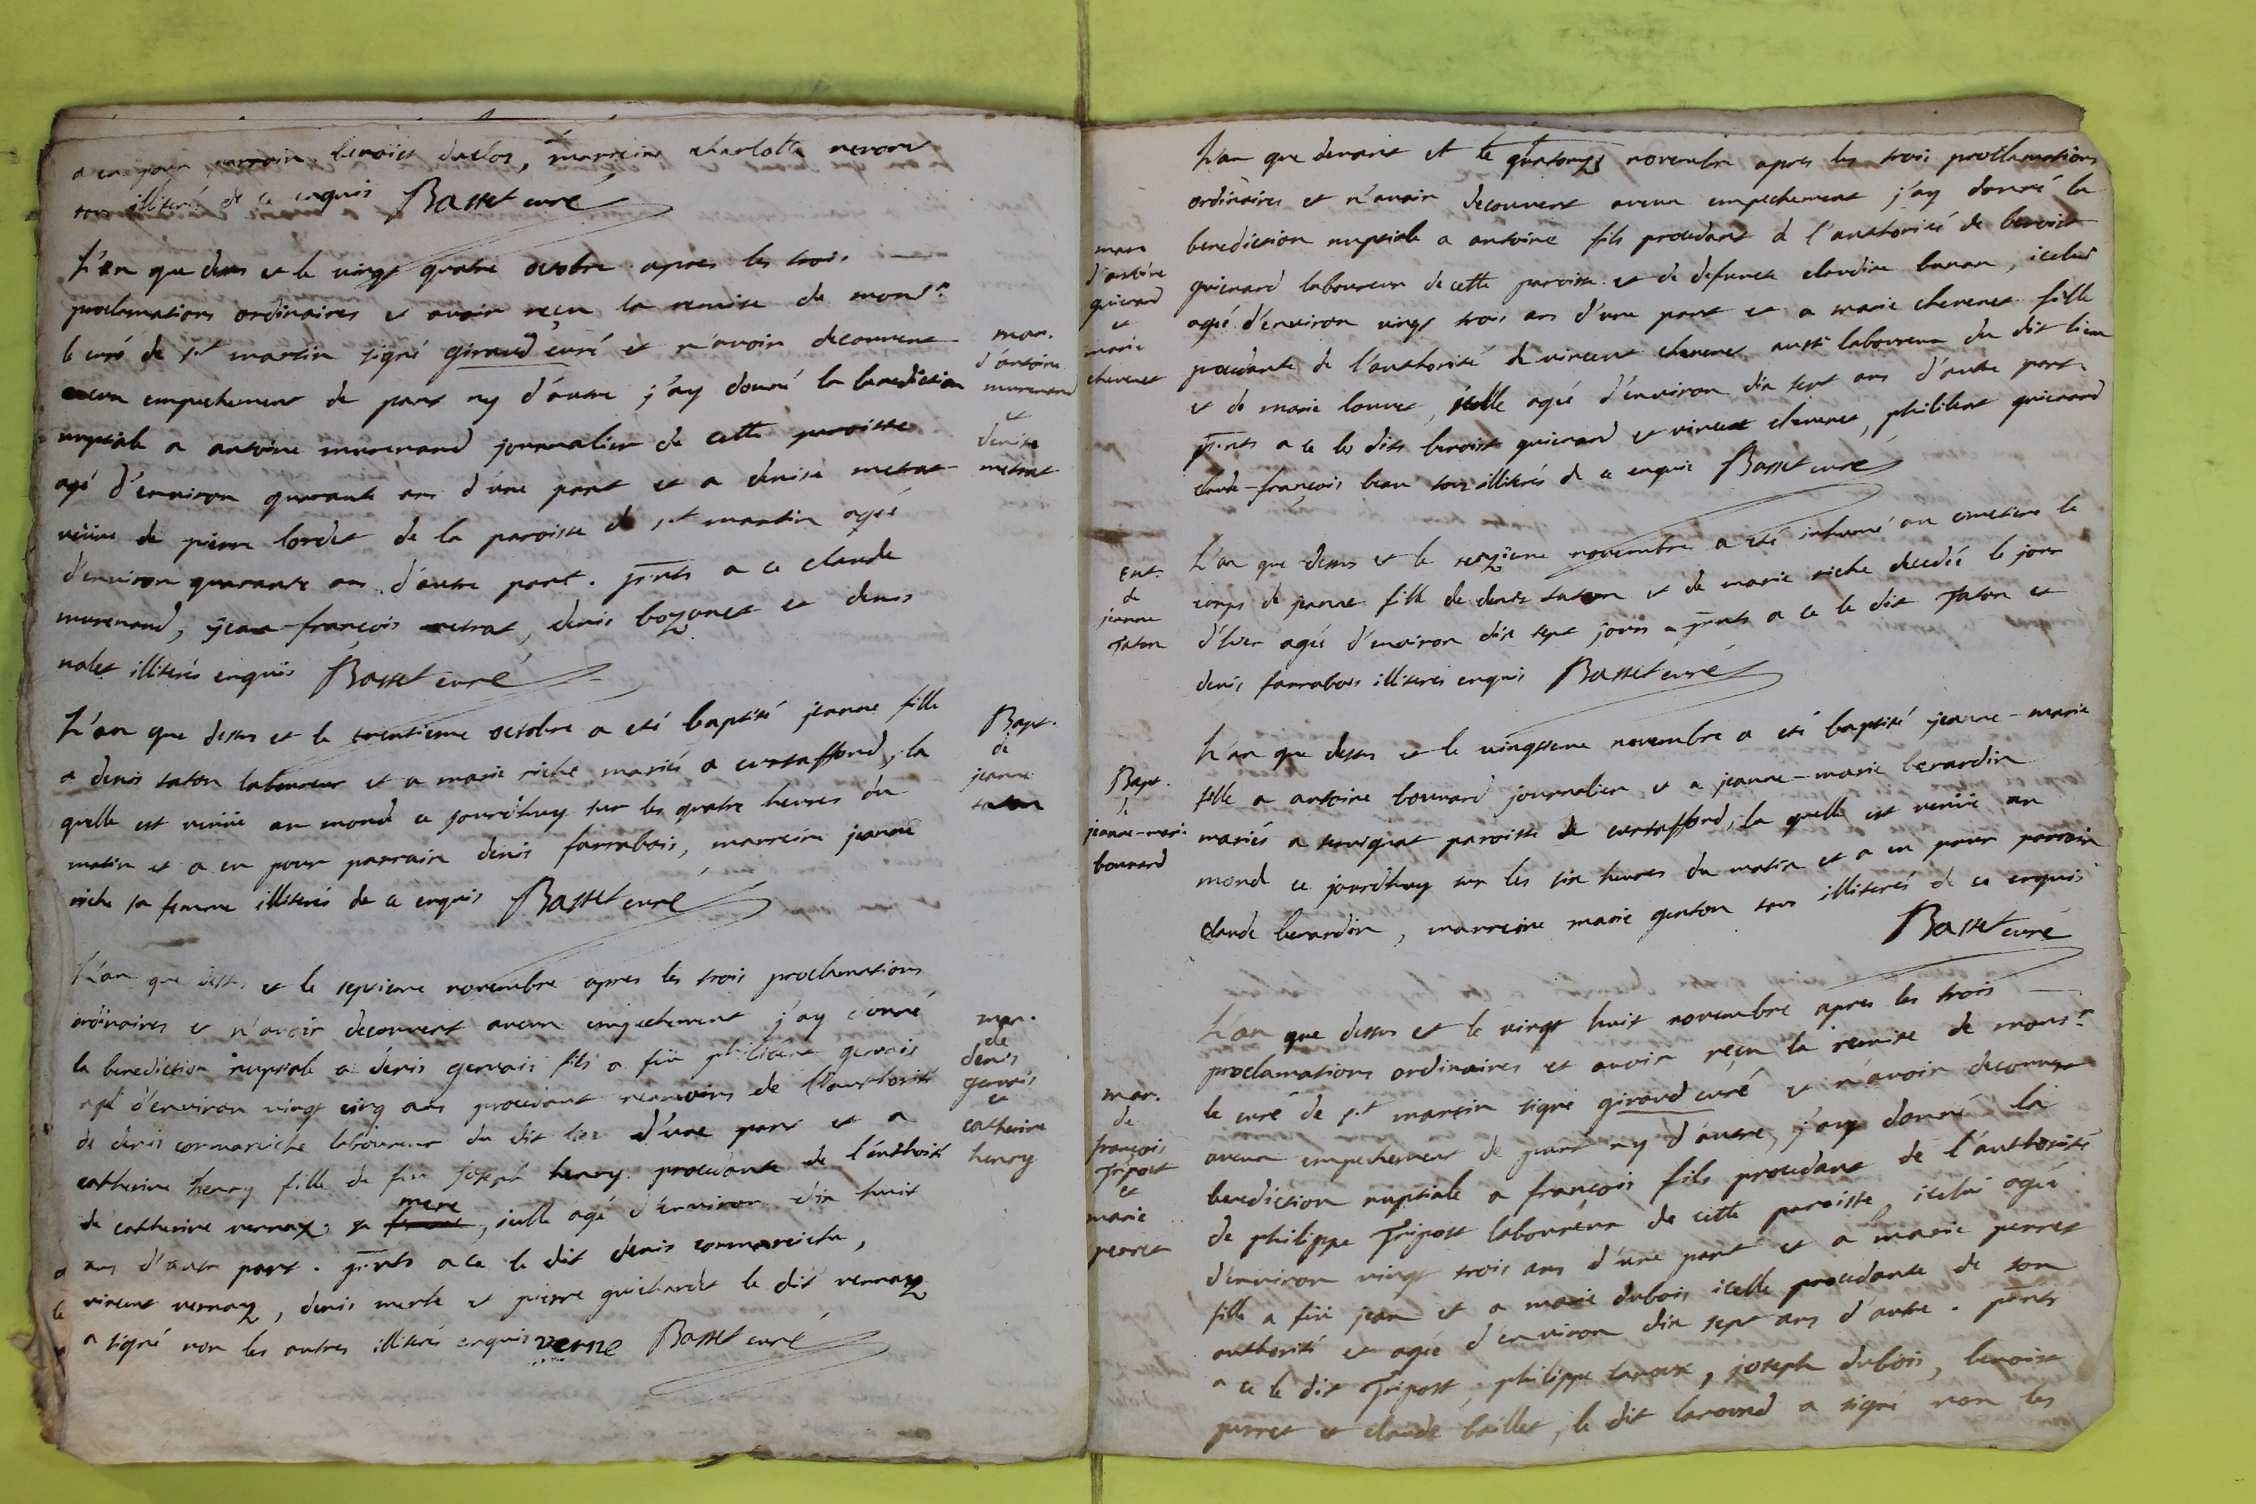 a eu pour parrain benoist duclos, marreine charlotte
tous illiterés de ce enquis Basset curé
L'an que dessus et le vingt quatre octobre apres les trois
proclamations ordinaires et avoir reçu la remise de monsr.
le curé de st martin signé giraud curé et n'avoir decouvert
aucun empechement de part ny d'autre j'ay donné la benediction
nuptiale a antoine murenand journalier de cette paroisse
agé d'environ quarante ans d'une part et a denise metrat
veuve de pierre lordet de la paroisse de st martin agée
d'environ quarante ans d'autre part. pnts a ce claude
murenand, jean-françois metrat, denis bozonet et denis
nalet illiterés enquis Basset curé
mar.
d'antoine
murenand
et
denise
metrat
L'an que dessus et le trentieme octobre a eté baptisé jeanne fille
a denis taton laboureur et a marie riche mariés a curtaffond, la
quelle est venüe au monde ce jourd'huy sur les quatre heures du
matin et a eu pour parrain denis farrabois, marreine jeanne
riche sa femme illiterés de ce enquis Basset curé
Bapt.
de
jeanne
taton
L'an que dessus et le septieme novembre apres les trois proclamations
ordinaires et n'avoir decouvert aucun empechement j'ay donné
la benediction nuptiale a denis gervais fils a feu philibert gervais
agé d'environ vingt cinq ans procedant neanmoins de l'authorité
de denis cormareiche laboureur du dit lieu d'une part et a
catherine henry fille de feu joseph henry procedante de l'authorité
de catherine vernay sa femme mere, icelle agé d'environ dix huit
ans d'autre part. pnts a ce le dit denis cormareiche,
vincent vernay, denis merle et pierre guichardet le dit vernay
a signé non les autres illiterés enquis verne Basset curé
mar.
de
denis
gervais
et
catherine
henry
L'an que devant et le quatorze novembre apres les trois proclamations
ordinaires et n'avoir decouvert aucun empechement j'ay donné la
benediction nuptiale a antoine fils procedant de l'authorité de benoist
guienard laboureur de cette paroisse et de defuncte claudine bunan, icelui
agé d'environ vingt trois ans d'une part et a marie chevenet fille
procedante de l'authorité de vincent chevenet aussi laboureur du dit lieu
et de marie louvet, icelle agée d'environ dix sept ans d'autre part
pnts a ce les dits benoist guienard et vincent chevenet, philibert guienard
claude-françois beau tous illiterés de ce enquis Basset curé
mar
d'antoine
guienard
et
marie
chevenet
L'an que dessus et le seizieme novembre a eté inhumé au cimetiere le
corps de jeanne fille de denis taton et de marie riche decedée le jour
d'hier agée d'environ dix sept jours pnts a ce le dit Taton et
denis farrabois illiterés enquis Basset curé
Ent.
de
jeanne
Taton
L'an que dessus et le vingtieme novembre a eté baptisé jeanne-marie
fille a antoine bouvard journalier et a jeanne-marie berardin
mariés a servignat paroisse de curtaffond, la quelle est venüe au
monde ce jourd'huy sur les six heures du matin et a eu pour parrain
claude berardin, marreine marie genton tous illiterés de ce enquis
Basset curé
Bapt.
de
jeanne-marie
bouvard
L'an que dessus et le vingt huit novembre apres les trois
proclamations ordinaires et avoir reçu la remise de monsr.
le curé de st martin signé giraud curé et n'avoir decouvert
aucun empechement de part ny d'autre, j'ay donné la
benediction nuptiale a françois fils procedant de l'authorité
de philippe Tripost laboureur de cette paroisse, icelui agé
d'environ vingt trois ans d'une part et a marie perret
fille a feu jean et a marie dubois icelle procedante de son
authorité et agée d'environ dix sept ans d'autre. pnts
a ce le dit Tripost, philippe, joseph dubois, benoist
perret et claude baillet, le dit a signé non les
mar.
de
françois
Tripost
et
marie
perret